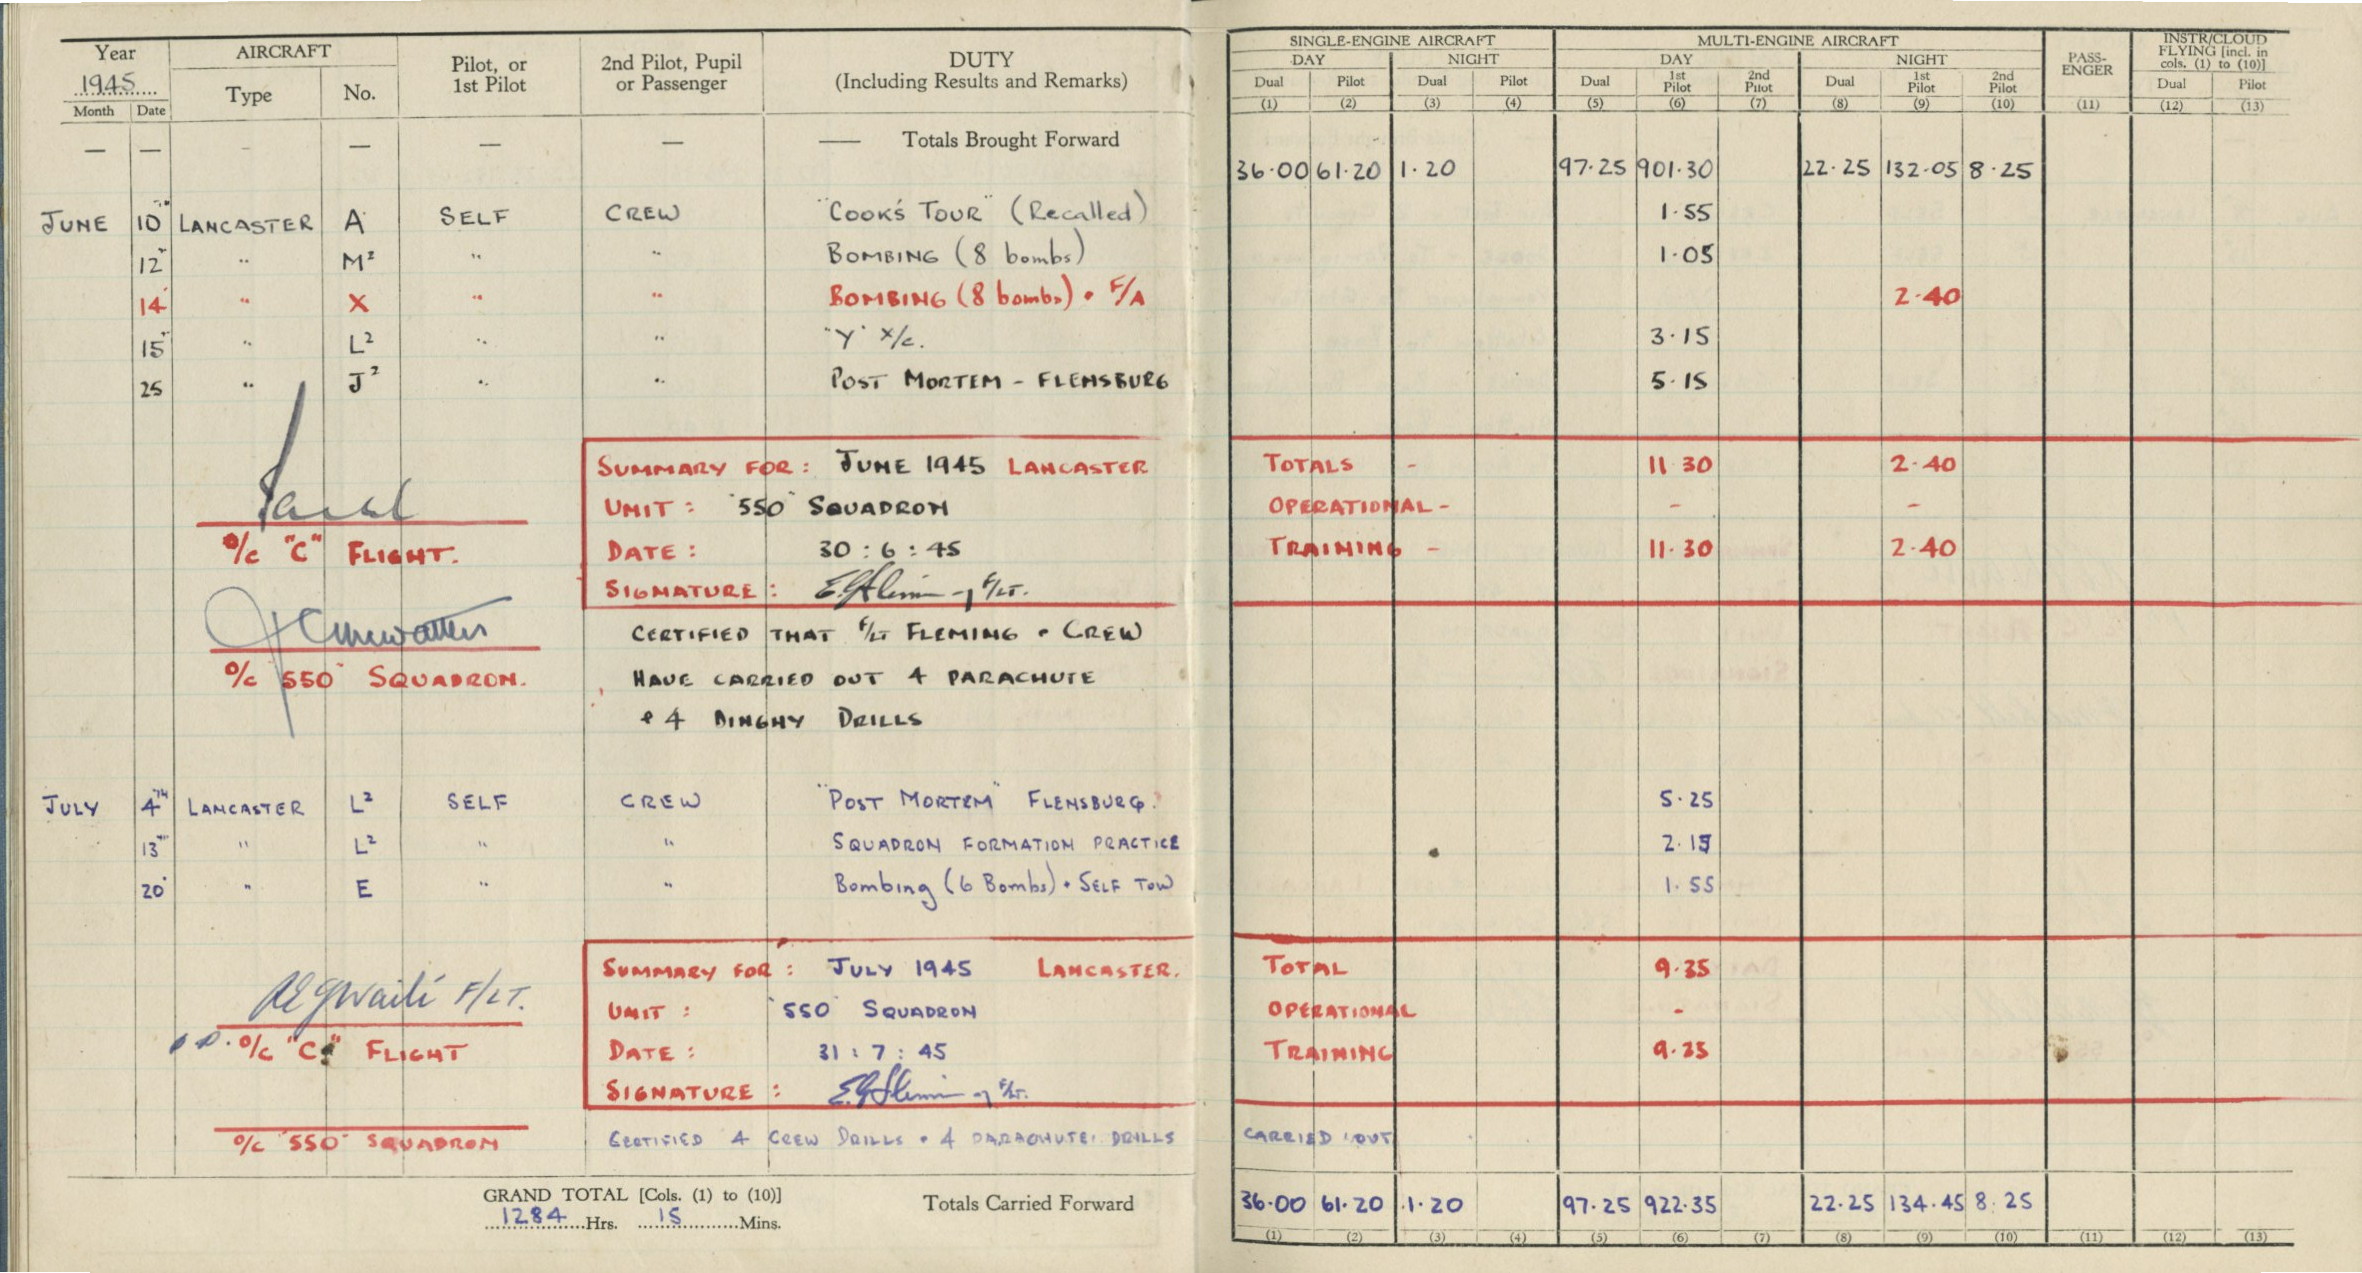 Year AIRCRAFT Pilot, or 1st Pilot 2nd Pilot, Pupil or Passenger DUTY (Including Results and Remarks) SINGLE-ENGINE AIRCRAFT MULTI-ENGINE AIRCRAFT PASSENGER INSTR/CLOUD FLYING [incl. in cols. (1) to (10)]
1945 Type No. DAY NIGHT DAY NIGHT
Month Date Dual Pilot Dual Pilot Dual 1st Pilot 2nd Pilot Dual 1st Pilot 2nd Pilot Dual Pilot
(1) (2) (3) (4) (5) (6) (7) (8) (9) (10) (11) (12) (13)
— — - — — — — Totals Brought Forward
36.00 61.20 1.20 97.25 901.30 22.25 132.05 8.25
JUNE 10th LANCASTER A SELF CREW "COOK'S TOUR" (Recalled) 1.55
12 " M² " " BOMBING (8 bombs) 1.05
14 " X " " BOMBING (8 bombs) • F/A 2.40
15 " L² " " "Y" X/c. 3.15
25 " J² " " POST MORTEM - FLENSBURG 5.15
SUMMARY FOR: JUNE 1945 LANCASTER TOTALS - 11.30 2.40
UNIT: "550" SQUADRON OPERATIONAL - - -
O/C "C" FLIGHT. DATE: 30:6:45 TRAINING - 11.30 2.40
SIGNATURE: F/LT.
CERTIFIED THAT F/LT FLEMING • CREW
O/C "550" SQUADRON. HAVE CARRIED OUT 4 PARACHUTE
• 4 DINGHY DRILLS
JULY 4TH LANCASTER L² SELF CREW "POST MORTEM" FLENSBURG. 5.25
13 " L² " " SQUADRON FORMATION PRACTICE 2.15
20 " E " " Bombing (6 Bombs) • SELF TOW 1.55
SUMMARY FOR: JULY 1945 LANCASTER. TOTAL 9.35
F/LT. UNIT: "550" SQUADRON OPERATIONAL -
O/C "C" FLIGHT DATE: 31:7:45 TRAINING 9.35
SIGNATURE: F/LT.
O/C "550" SQUADRON CERTIFIED 4 CREW DRILLS • 4 PARACHUTE DRILLS CARRIED OUT
GRAND TOTAL [Cols. (1) to (10)] Totals Carried Forward 36.00 61.20 1.20 97.25 922.35 22.25 134.45 8.25
1284 Hrs. 15 Mins.
(1) (2) (3) (4) (5) (6) (7) (8) (9) (10) (11) (12) (13)